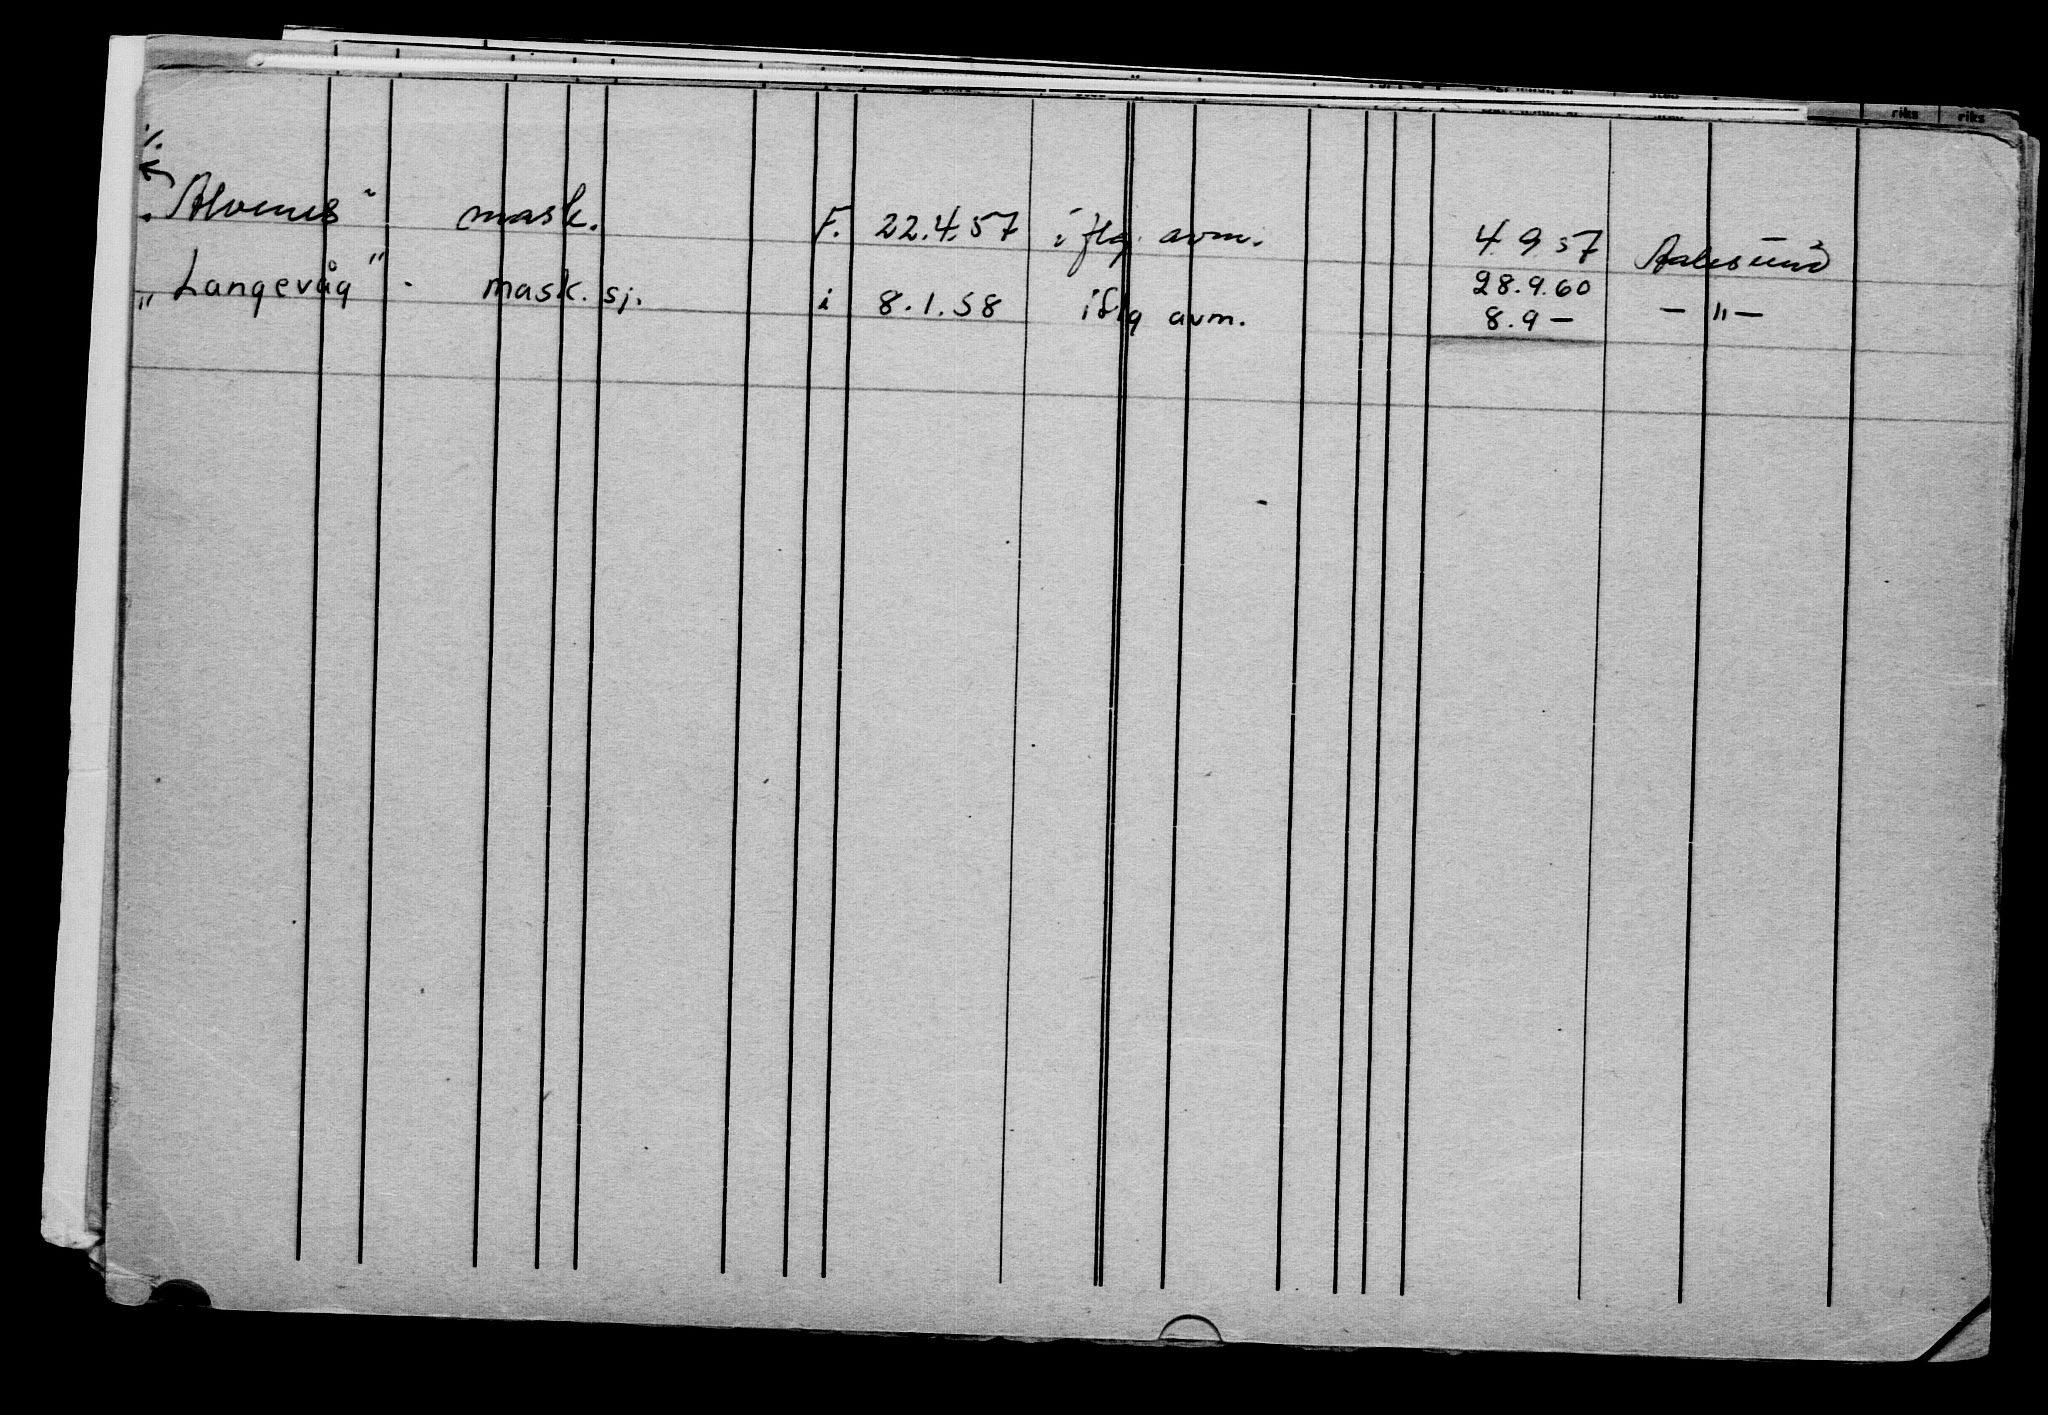 riks riks
"Alvenes" mask. F. 22.4.57 iflg. avm. 4 9 57 Aalesund
28.9.60
"Langevåg" - mask. sj. i 8.1.58 iflg avm. 8.9 — — " —